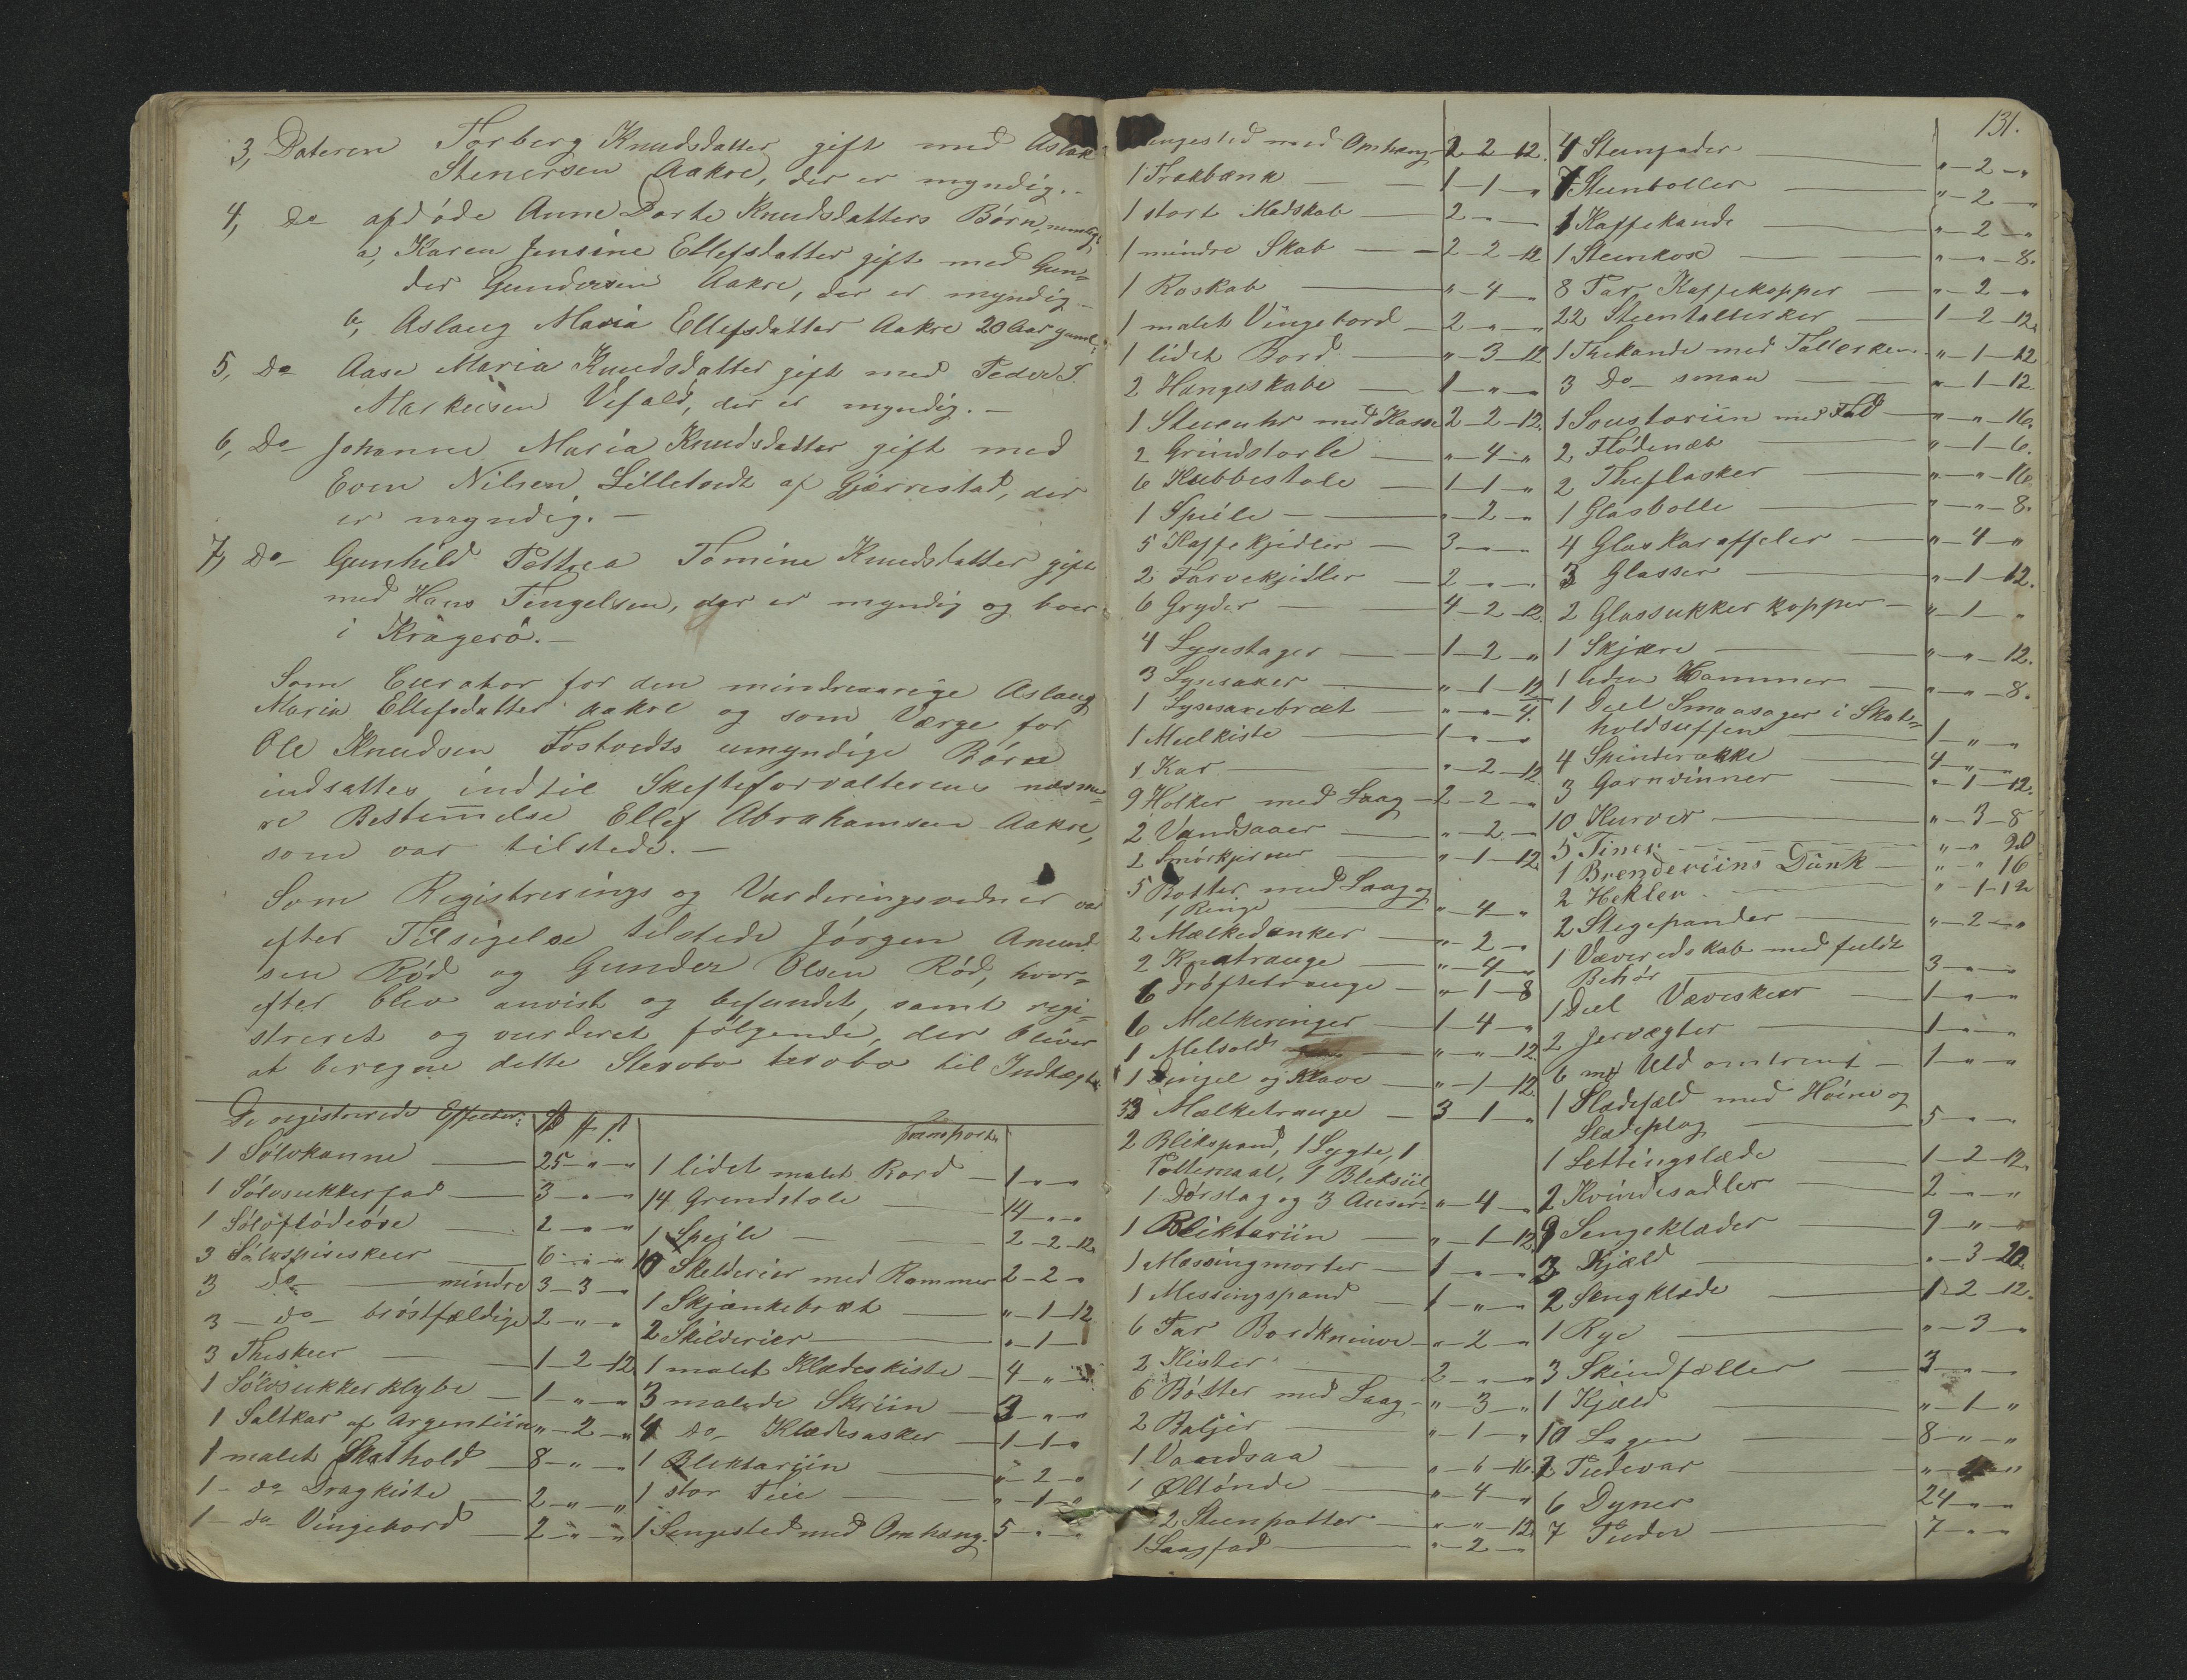 3, Dateren Torberg Knudsdatter gift med Aslak
Stenersen Aakre, der er myndig.-
4, do afdøde Anne Dorte Knudsdatters Børn, nemlig:
a, Karen Jensine Ellefsdatter gift med Gun=
der Gundersen Aakre, der er myndig-
b, Aslaug Maria Ellefsdatter Aakre 20 Aar gaml.
5, do Aase Maria Knudsdatter gift med Peder T.
Markusen Vefald, der er myndig.-
6, do Johanne Maria Knudsdatter gift med
Even Nilsen Lilletvedt af Gjerrestad, der
er myndig.-
7, do Gunhild Pettrea Tomine Knudsdatter gift
med Hans Tingelsen, der er myndig og boer
i Kragerö.-
Som Curator for den mindreaarige Aslaug
Maria Ellefsdatter Aakre og som Værge for
Ole Knudsen Tostvedts umyndige Børn
indsattes indtil Skifteforvalterens nærme=
re Bestemelse Ellef Abrahamsen Aakre,
som var tilstede.-
Som Registrerings og Vurderingsvidner var
efter Tilsigelse tilstede Jørgen Amund
sen Rød og Gunder Olsen Rød, hvor=
efter blev anvist og befundet, samt regi=
streret og vurderet følgende, der bliver
at beregne dette Stervbo til Indtægt
De registrerede Effecter:
1 Sølvkanne 25 - " - "
1 Sølvsukkerfad 3 - " - "
1 Sølvfløde 2 - " - "
3 Sølvspiseskeer 6 - " - "
3 do mindre 3 - 3 - "
3 - do - brøstfældige 2 - " - "
3 Theskeer 1 - 2 - 12
1 Sølvsukkerklybe 1 - " - "
1 Saltkar af Argentiin " - 2 - "
1 malet Skathold 8 - " - "
1 - do Dragkiste 2 - " - "
1 - do Vingebord 2 - " - "
Transport
1 lidet malet Bord 1 - " - "
14 Grindstole 14 - " - "
1 Speile 2 - 2 - 12
10 Skilderier med Rammer 2 - 2 - "
1 Skjænkebræt " - 1 - 12
2 Skilderier " - 1 -
1 malet Klædeskiste 4 - " - "
3 malede Skriin 3 - " - "
4 do Klædesasker 1 - 1 - "
1 Bliktariin " - 2 - "
1 stor Tiie " - 1 - "
1 Sengested med Omhæng. 5 - " - "
131.
engested med Omhæng 2 - 12.
1 Trækbænk 1 - 1 - "
1 stort Madskab 2 - " -
1 mindre Skab 2 - 2 - 12
1 Roskab " - 4 - "
1 malet Vingebord 2 - " - "
1 lidet Bord " - 3 - 12
2 Hængeskabe 1 - " - "
1 Stueuhr med Kasse 2 - 2 - 12
2 Grindstole " - 4 - "
6 Kubbestole 1 - 1 - "
1 Speile " - 2 - "
5 Kaffekjedler 3 - " -
2 Farvekjedler 2 - " - "
6 Gryder 4 - 2 - 12.
4 Lysestager 1 - 2 - "
3 Lysesaxer " - 1 - 12
1 Lysesaxebræt " - " - 4.
1 Meelkiste 1 - " - "
4 Kar " - 2 - 12
9 Holker med Laag 2 - 2 - "
2 Vandsaaer " - 2 - "
2 Smørkjerner " - 1 - 12
5 Botter med Laag og
1 Ringe " - 4 - "
2 Mælkedunker " - 2 - "
2 Knatrauge " - 4 - "
6 Drøftetrauge " - 1 - 8
6 Mælkeringer 1 - 4 - "
1 Melsold " - " - 12
1 og Klave " - 1 - 12
33 Mælketrauge 3 - 1 - "
2 Blikspand, 1 Lygte, 1
Pottemaal, 1 Bliksiil,
1 Dørslag og 3 " - 4 - "
1 Bliktariin " - 1 - 12
1 Messingmorter 1 - " - "
1 Messingspand 1 - " - "
6 Par Bordknive " - 2 - "
2 Kister 2 - " - "
6 Bøtter med Laag " - 3 - "
2 Baljer " - 1 - "
1 Vandsaa " - " - 16
1 Øltønde " - 4 - "
2 Steenpotter " - " - 12
1 Laagfad " - 2 - "
4 Steenfader " - 2 - "
7 Steenboller " - 2 - "
1 Kaffekande " - 2 - "
1 Steenkop " - " - 8.
8 Par Kaffekopper " - 2 - "
22 Steentallerker 1 - 2 - 12.
1 Thekande med Tallerken " - 1 - 12
3 do smaa " - 1 - 12
1 Soustariin med Fad " - " - 16.
2 Flødenæb " - 1 - 6.
2 Theflasker " - " - 16
1 Glasbolle " - " - 8.
4 Glaskaraffeler " - 4 - "
3 Glasser " - 1 - 12.
2 Glassukkerkopper " - 1 - "
1 Skjære " - " - 12.
1 liden Hammer " - " - 8.
1 Deel Smaasager i Skat=
holdsuffen 1 - " - "
4 Spinderokke 4 - " - "
3 Garnvinner " - 1 - 12.
10 Kurver " - 3 - 8
5 Tiner " " 20
1 Brendeviins Dunk " " 16
2 Hekler " - 1 - 12
2 Stegepander " - 2 - "
1 Væveredskab med fuldt
Behør 3 - " - "
1 Deel Væveskeer 1 - " - "
2 Jernvægter 1 - " - "
6 mk Uld omtrent 1 - " - "
1 Sladefæld med Høine og
Sladeplag 5 - " - "
1 Lettingslæde 1 - 2 - 12.
2 Kvindesadler 2 - " - "
9 Sengeklæder 9 - " - "
3 Kjæld " - 3 - 20.
2 Sengklæde 1 - 2 - 12.
1 Rye " - 3 - "
3 Skindfæller 3 - " - "
1 Kjæld " - 1 - "
10 Lagen 8 - " - "
2 Pudevar
6 Dyner 24 - " - "
7 Puder 7 - " - "